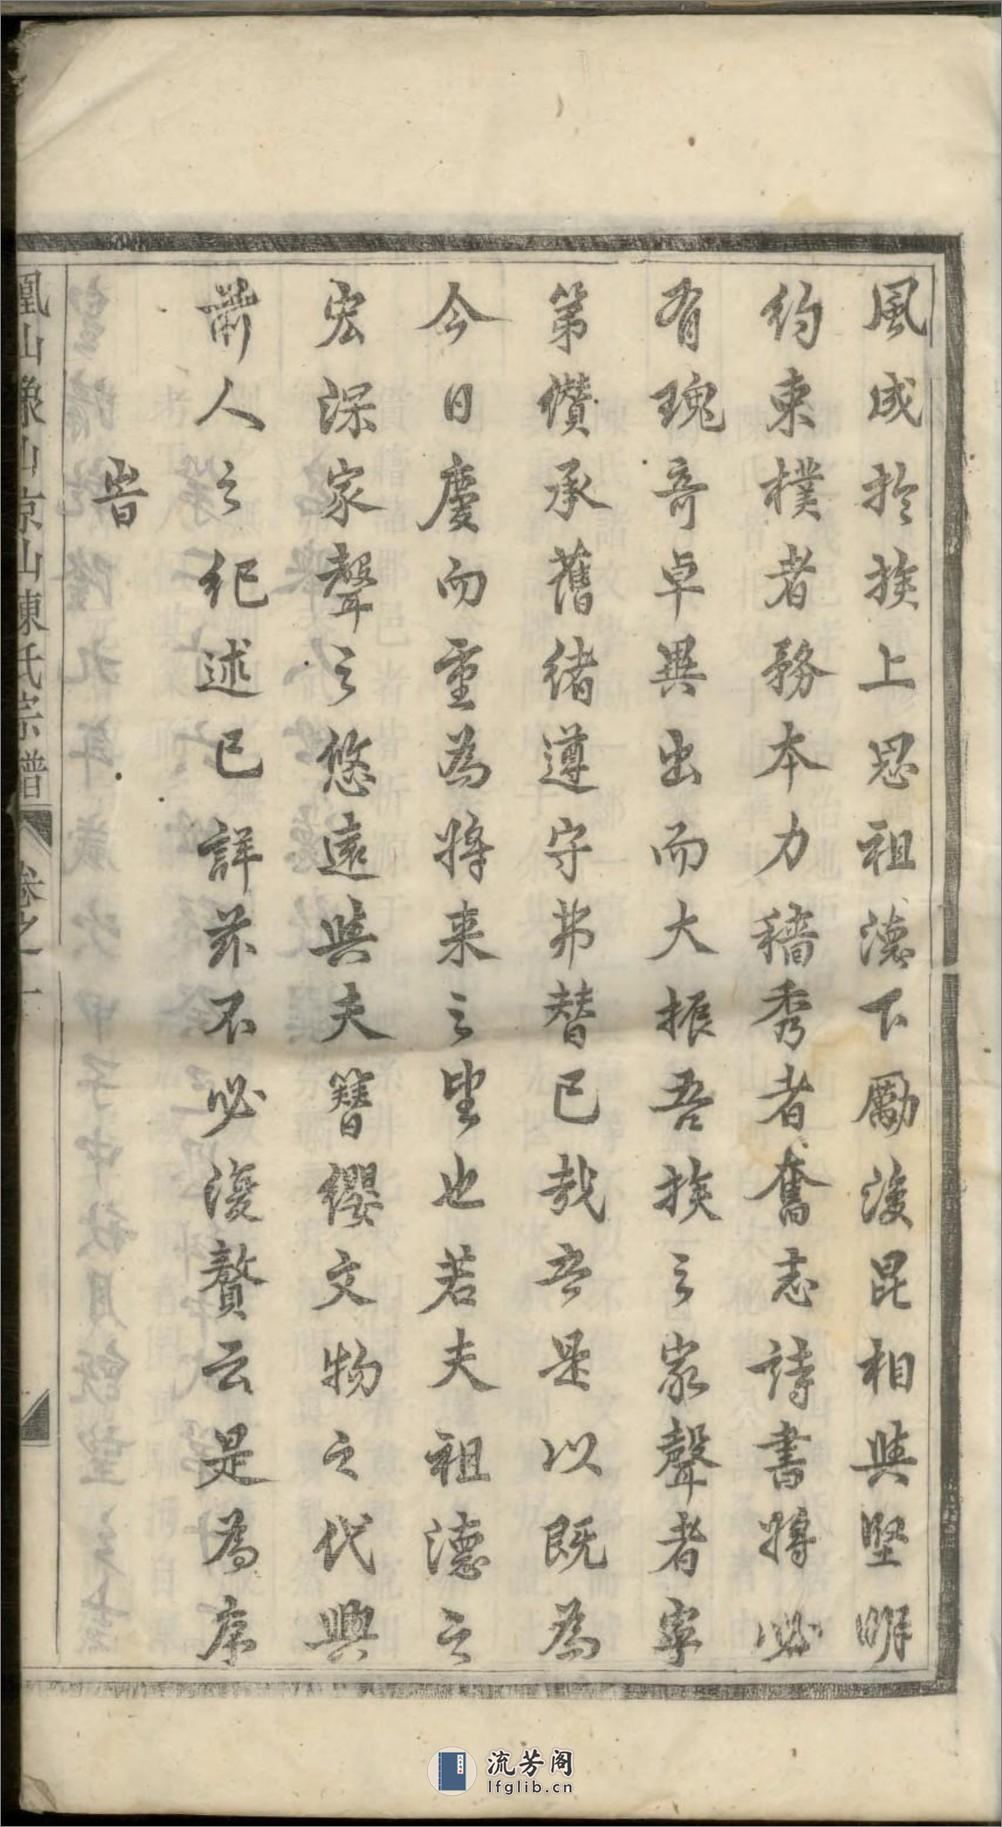 風成於族上思祖德下勵後昆相與堅明
約束樸者務本力穡秀者奮志詩書將必
有瑰奇卓異出而大振吾族之家聲者寧
第纘承舊緒遵守弗替已哉吾是以既為
今日慶而重為將来之望也若夫祖德之
宏深家聲之悠遠與夫簪纓文物之代興
前人之紀述已詳茲不必復贅云是為序
旹
鳳山象山京山陳氏宗譜 卷之一
流芳阁
lfglib.cn